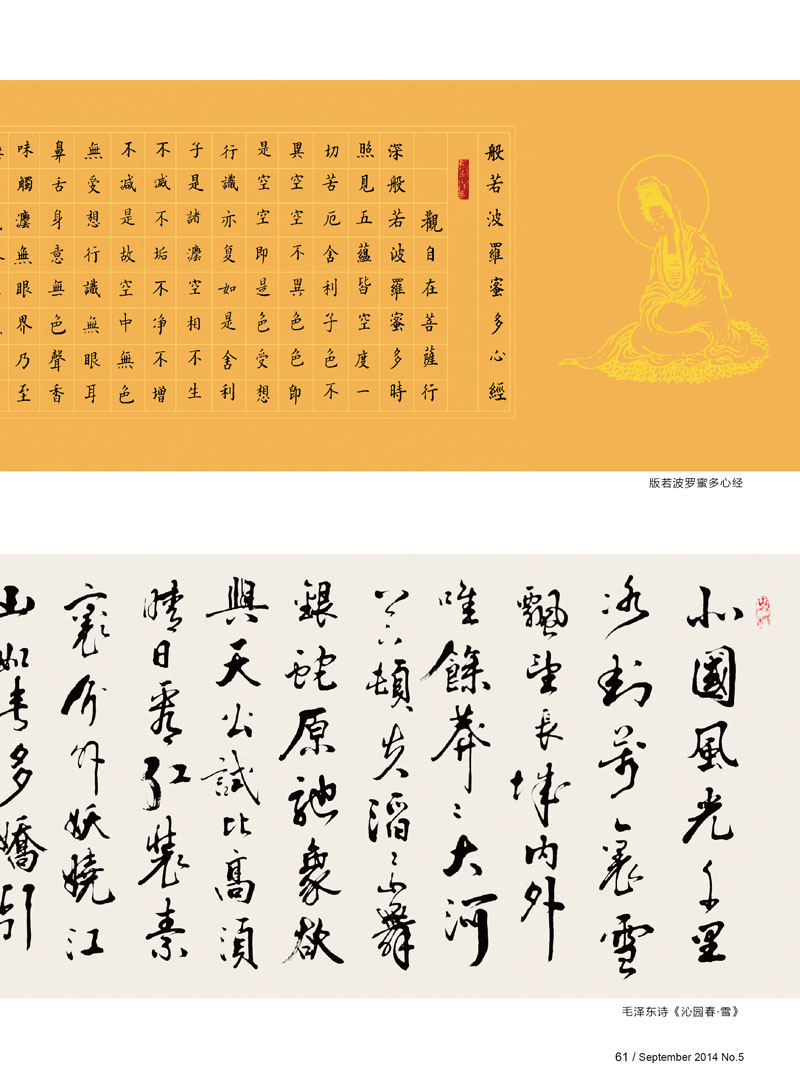 般若波羅蜜多心經
觀自在菩薩行
深般若波羅蜜多時
照見五蘊皆空度一
切苦厄舍利子色不
異空空不異色色即
是空空即是色受想
行識亦复如是舍利
子是諸灋空相不生
不滅不垢不净不增
不减是故空中無色
無受想行識無眼耳
鼻舌身意無色聲香
味觸灋無眼界乃至
版若波罗蜜多心经
北國風光千里
冰封萬里雪
飄望長城内外
唯餘莽々大河
上下頓失滔々山舞
銀蛇原馳象欲
與天公試比高須
晴日看紅裝素
裹分外妖嬈江
山如此多嬌引
毛泽东诗《沁园春·雪》
61 / September 2014 No.5